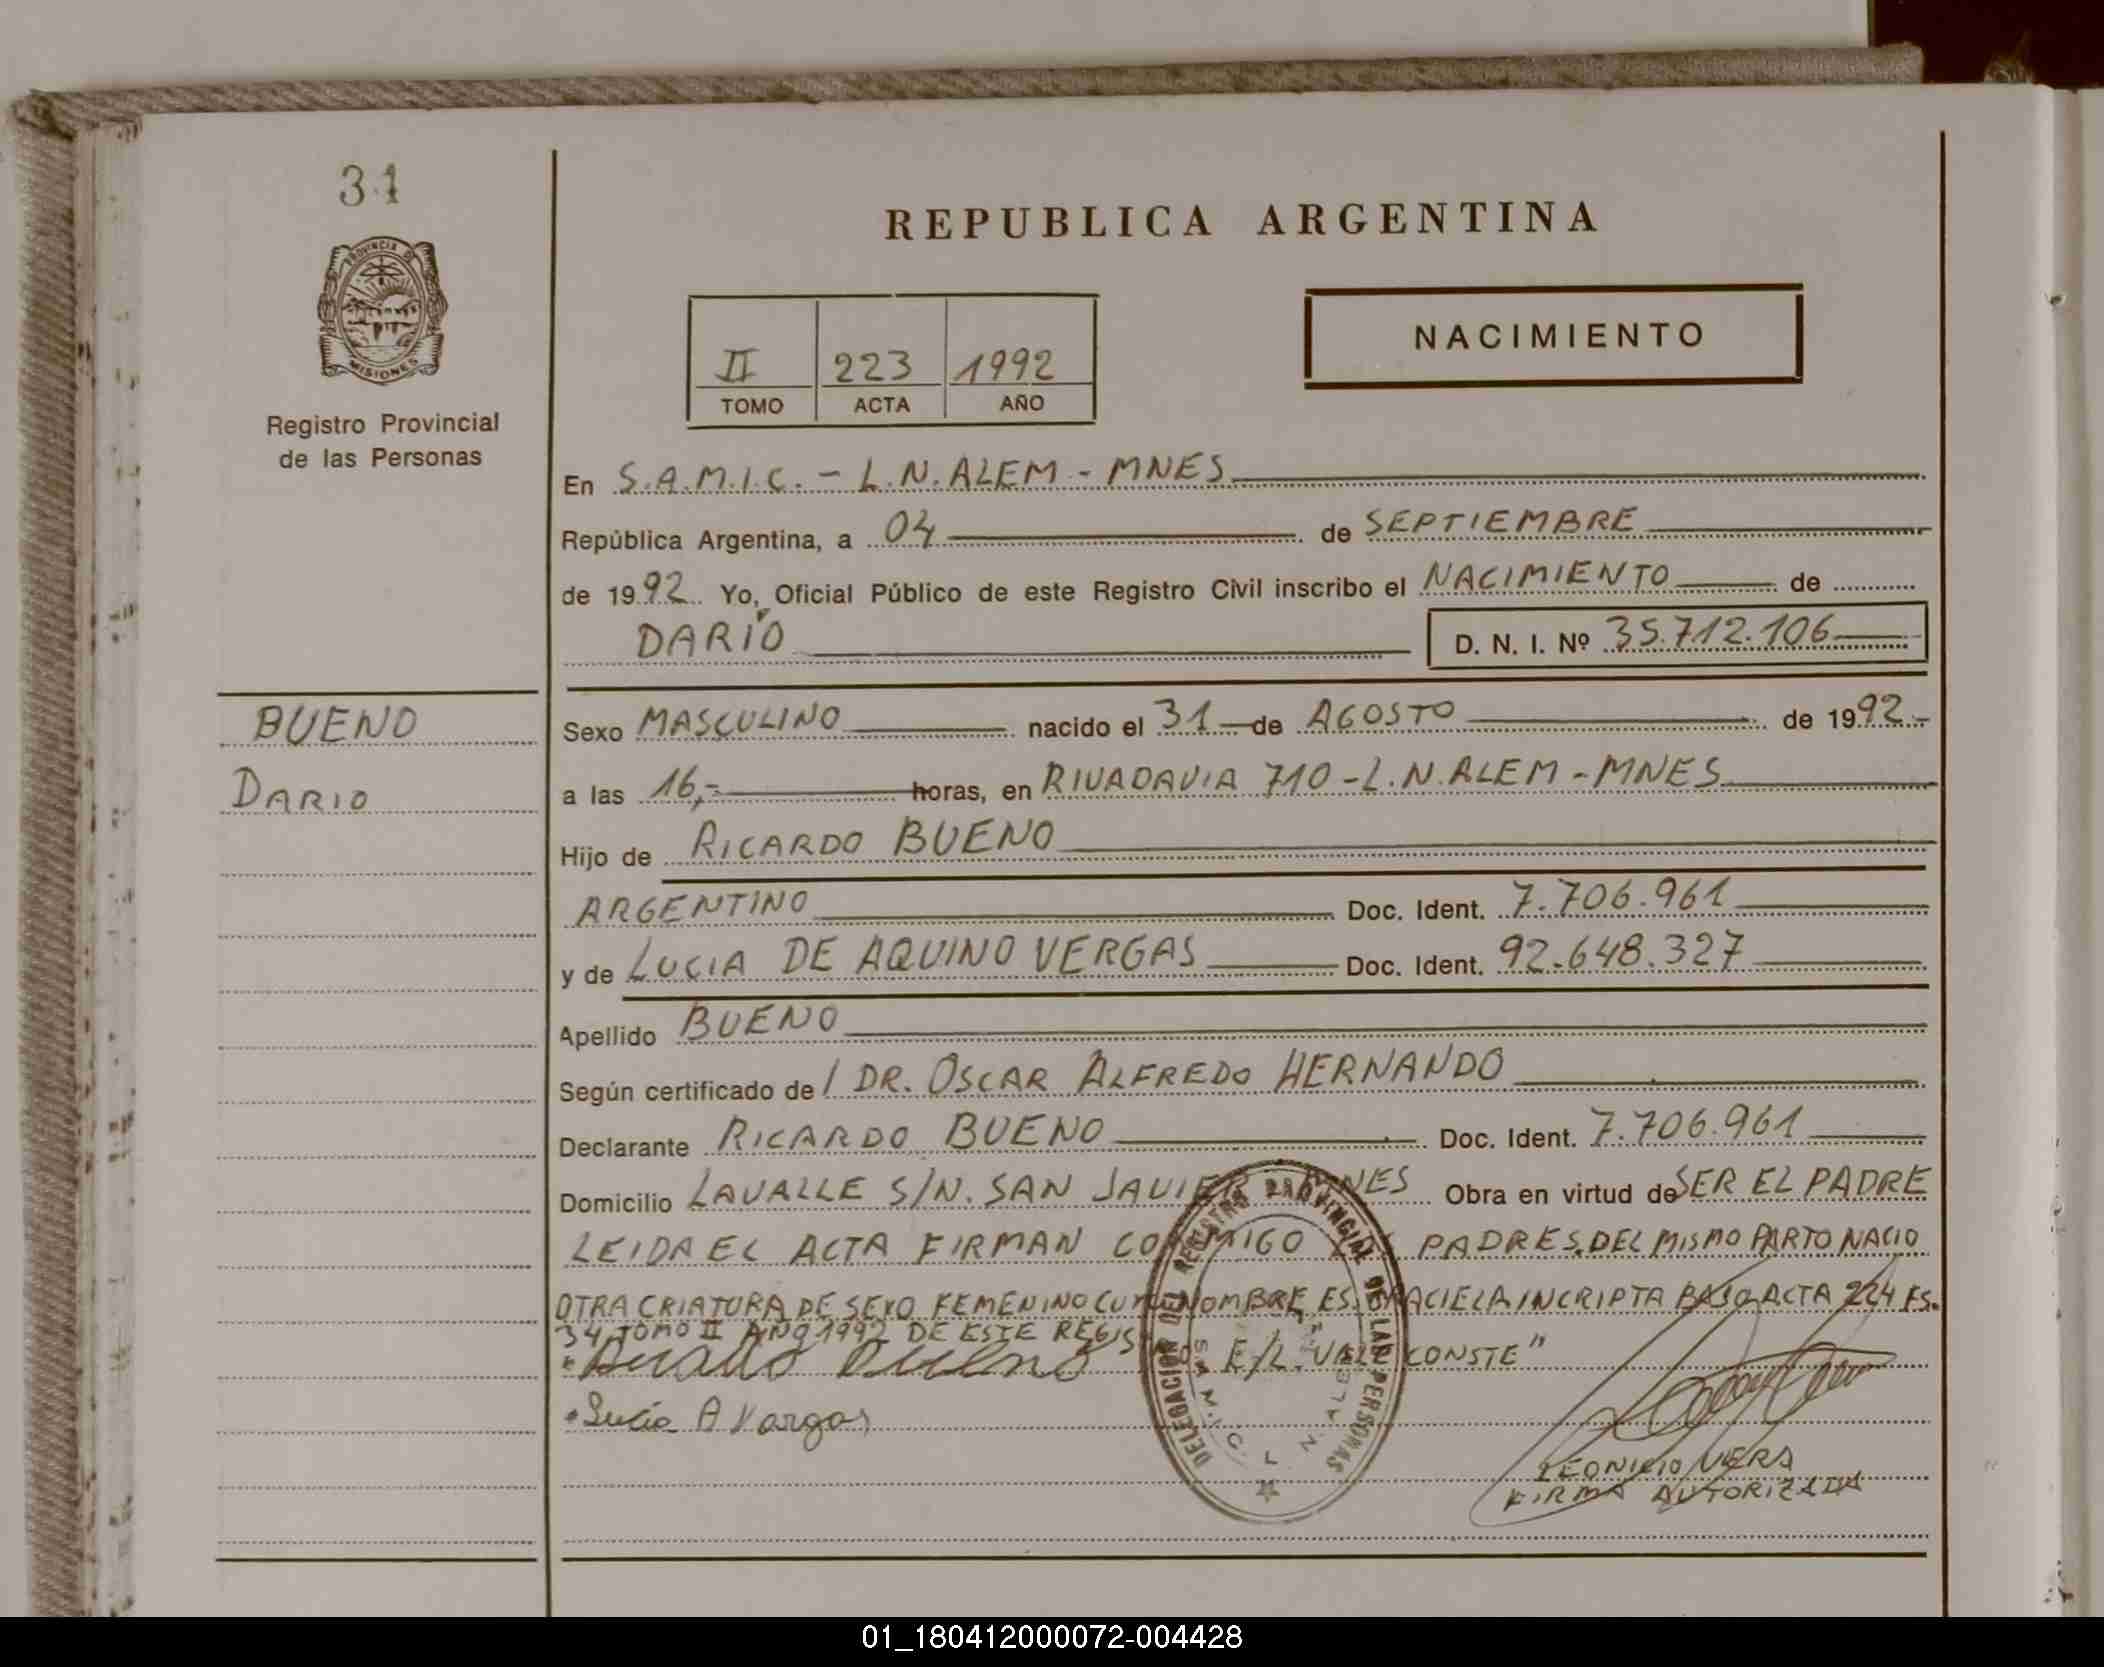 31
PROVINCIA DE
MISIONES
Registro Provincial
de las Personas
REPUBLICA ARGENTINA
II 223 1992
TOMO ACTA AÑO
NACIMIENTO
En S.A.M.I.C. - L.N. ALEM - MNES
República Argentina, a 04 de SEPTIEMBRE
de 1992 Yo, Oficial Público de este Registro Civil inscribo el NACIMIENTO de
DARIO D. N. I. Nº 35.712.106
BUENO
DARIO
Sexo MASCULINO nacido el 31 de AGOSTO de 1992
a las 16,- horas, en RIVADAVIA 710 - L.N. ALEM - MNES
Hijo de RICARDO BUENO
ARGENTINO Doc. Ident. 7.706.961
y de LUCIA DE AQUINO VERGAS Doc. Ident. 92.648.327
Apellido BUENO
Según certificado de / DR. OSCAR ALFREDO HERNANDO
Declarante RICARDO BUENO Doc. Ident. 7.706.961
Domicilio LAVALLE S/N. SAN JAVIER MNES Obra en virtud de SER EL PADRE
LEIDA EL ACTA FIRMAN CONMIGO PADRES. DEL MISMO PARTO NACIO
OTRA CRIATURA DE SEXO FEMENINO CUYO NOMBRE ES GRACIELA INCRIPTA BAJO ACTA 224 FS.
34 TOMO II AÑO 1992 DE ESTE REGIS
E/L. VALE CONSTE"
Lucia A Vargas
DELEGACION DEL REGISTRO PROVINCIAL DE LAS PERSONAS
S.A.M.I.C. L. N. ALEM
LEONICIO VERA
FIRMA AUTORIZADA
01_180412000072-004428